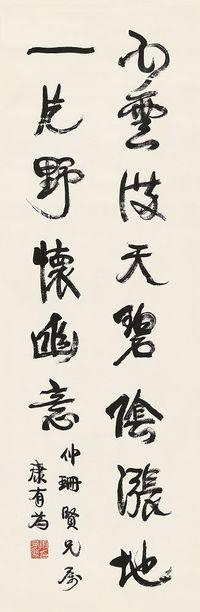 雲天碧陰漲地
一野懷幽意
仲珊賢兄屬
康有為